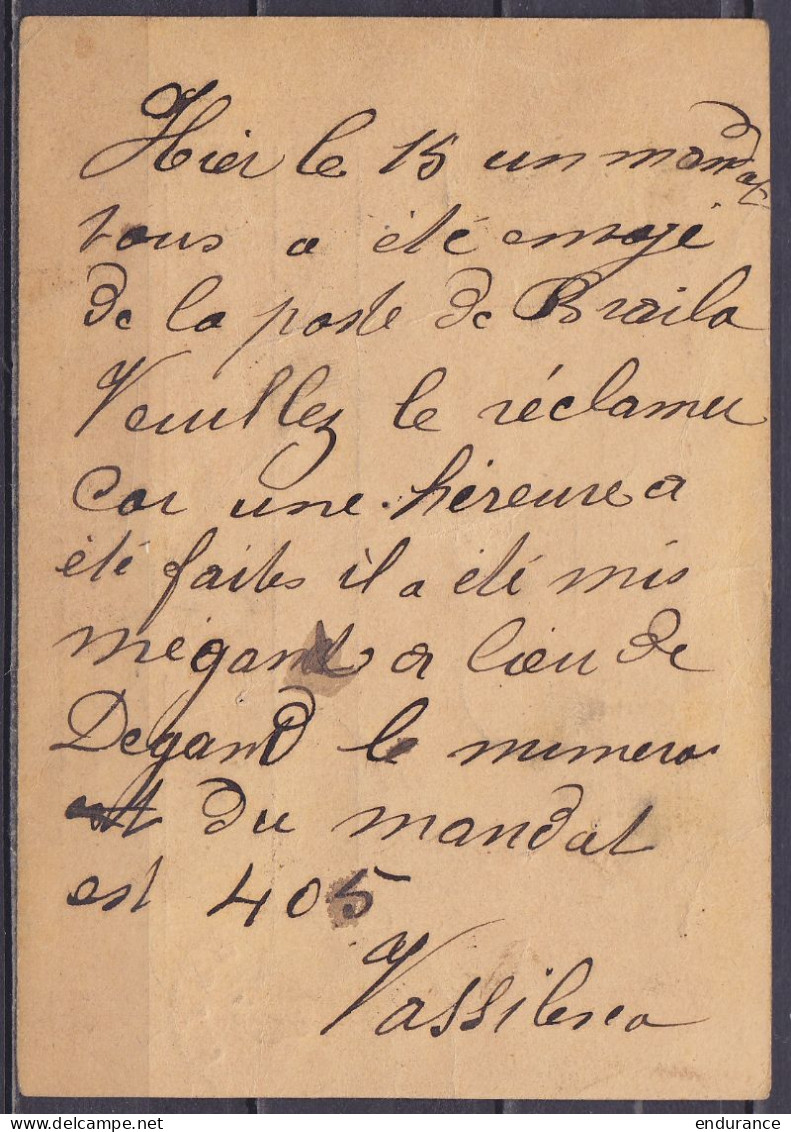 Hier le 15 un mandat
vous a été envoyé
de la poste de Braila
Veuillez le réclamer
Car une héreure a
été faites il a été mis
mégant a lieu de
Degand le numero
est du mandat
est 405
Vassilesco
endurance